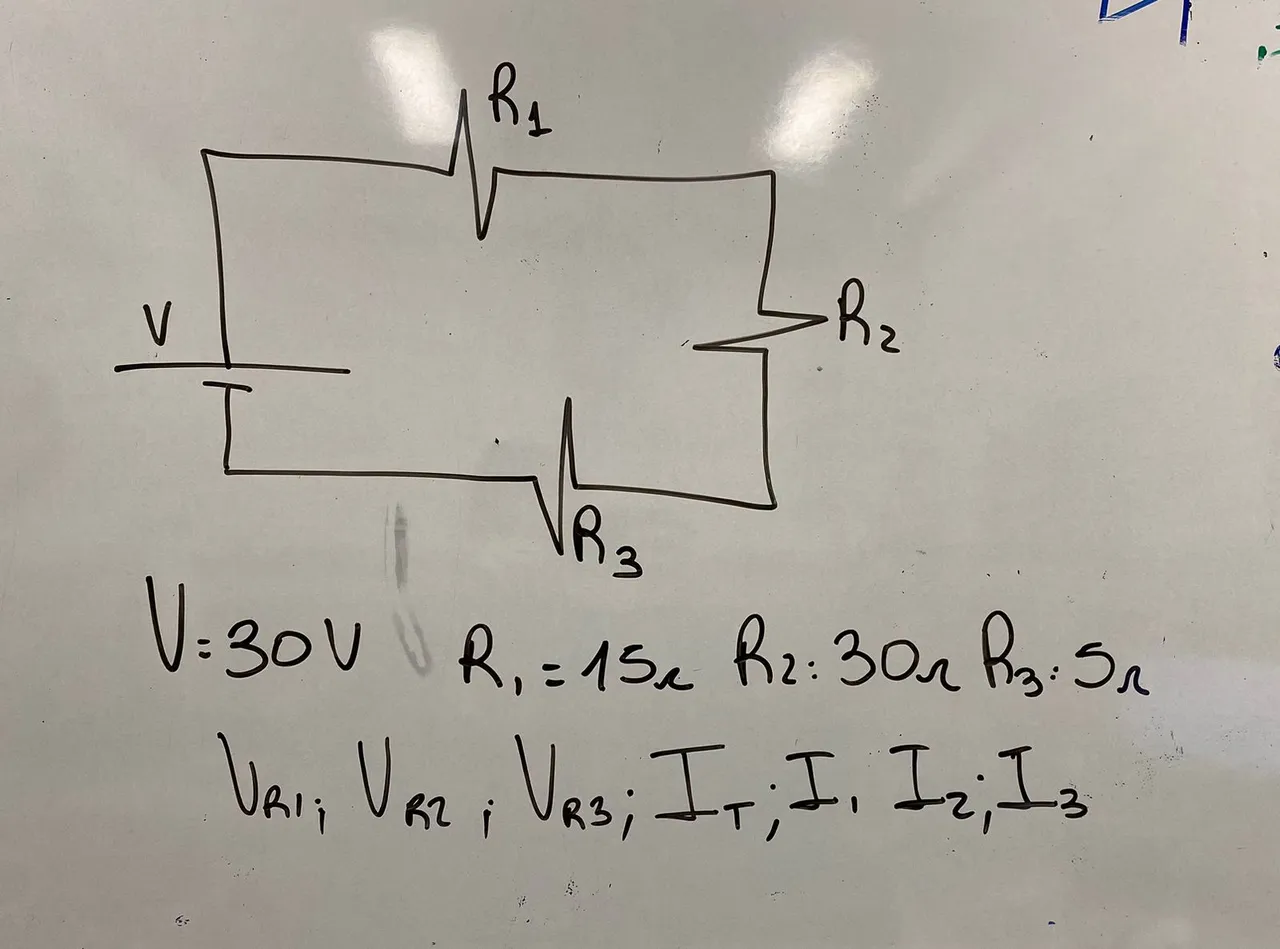 R1
V
R2
R3
V=30V R1=15Ω R2:30Ω R3:5Ω
VR1; VR2; VR3; IT; I1 I2; I3